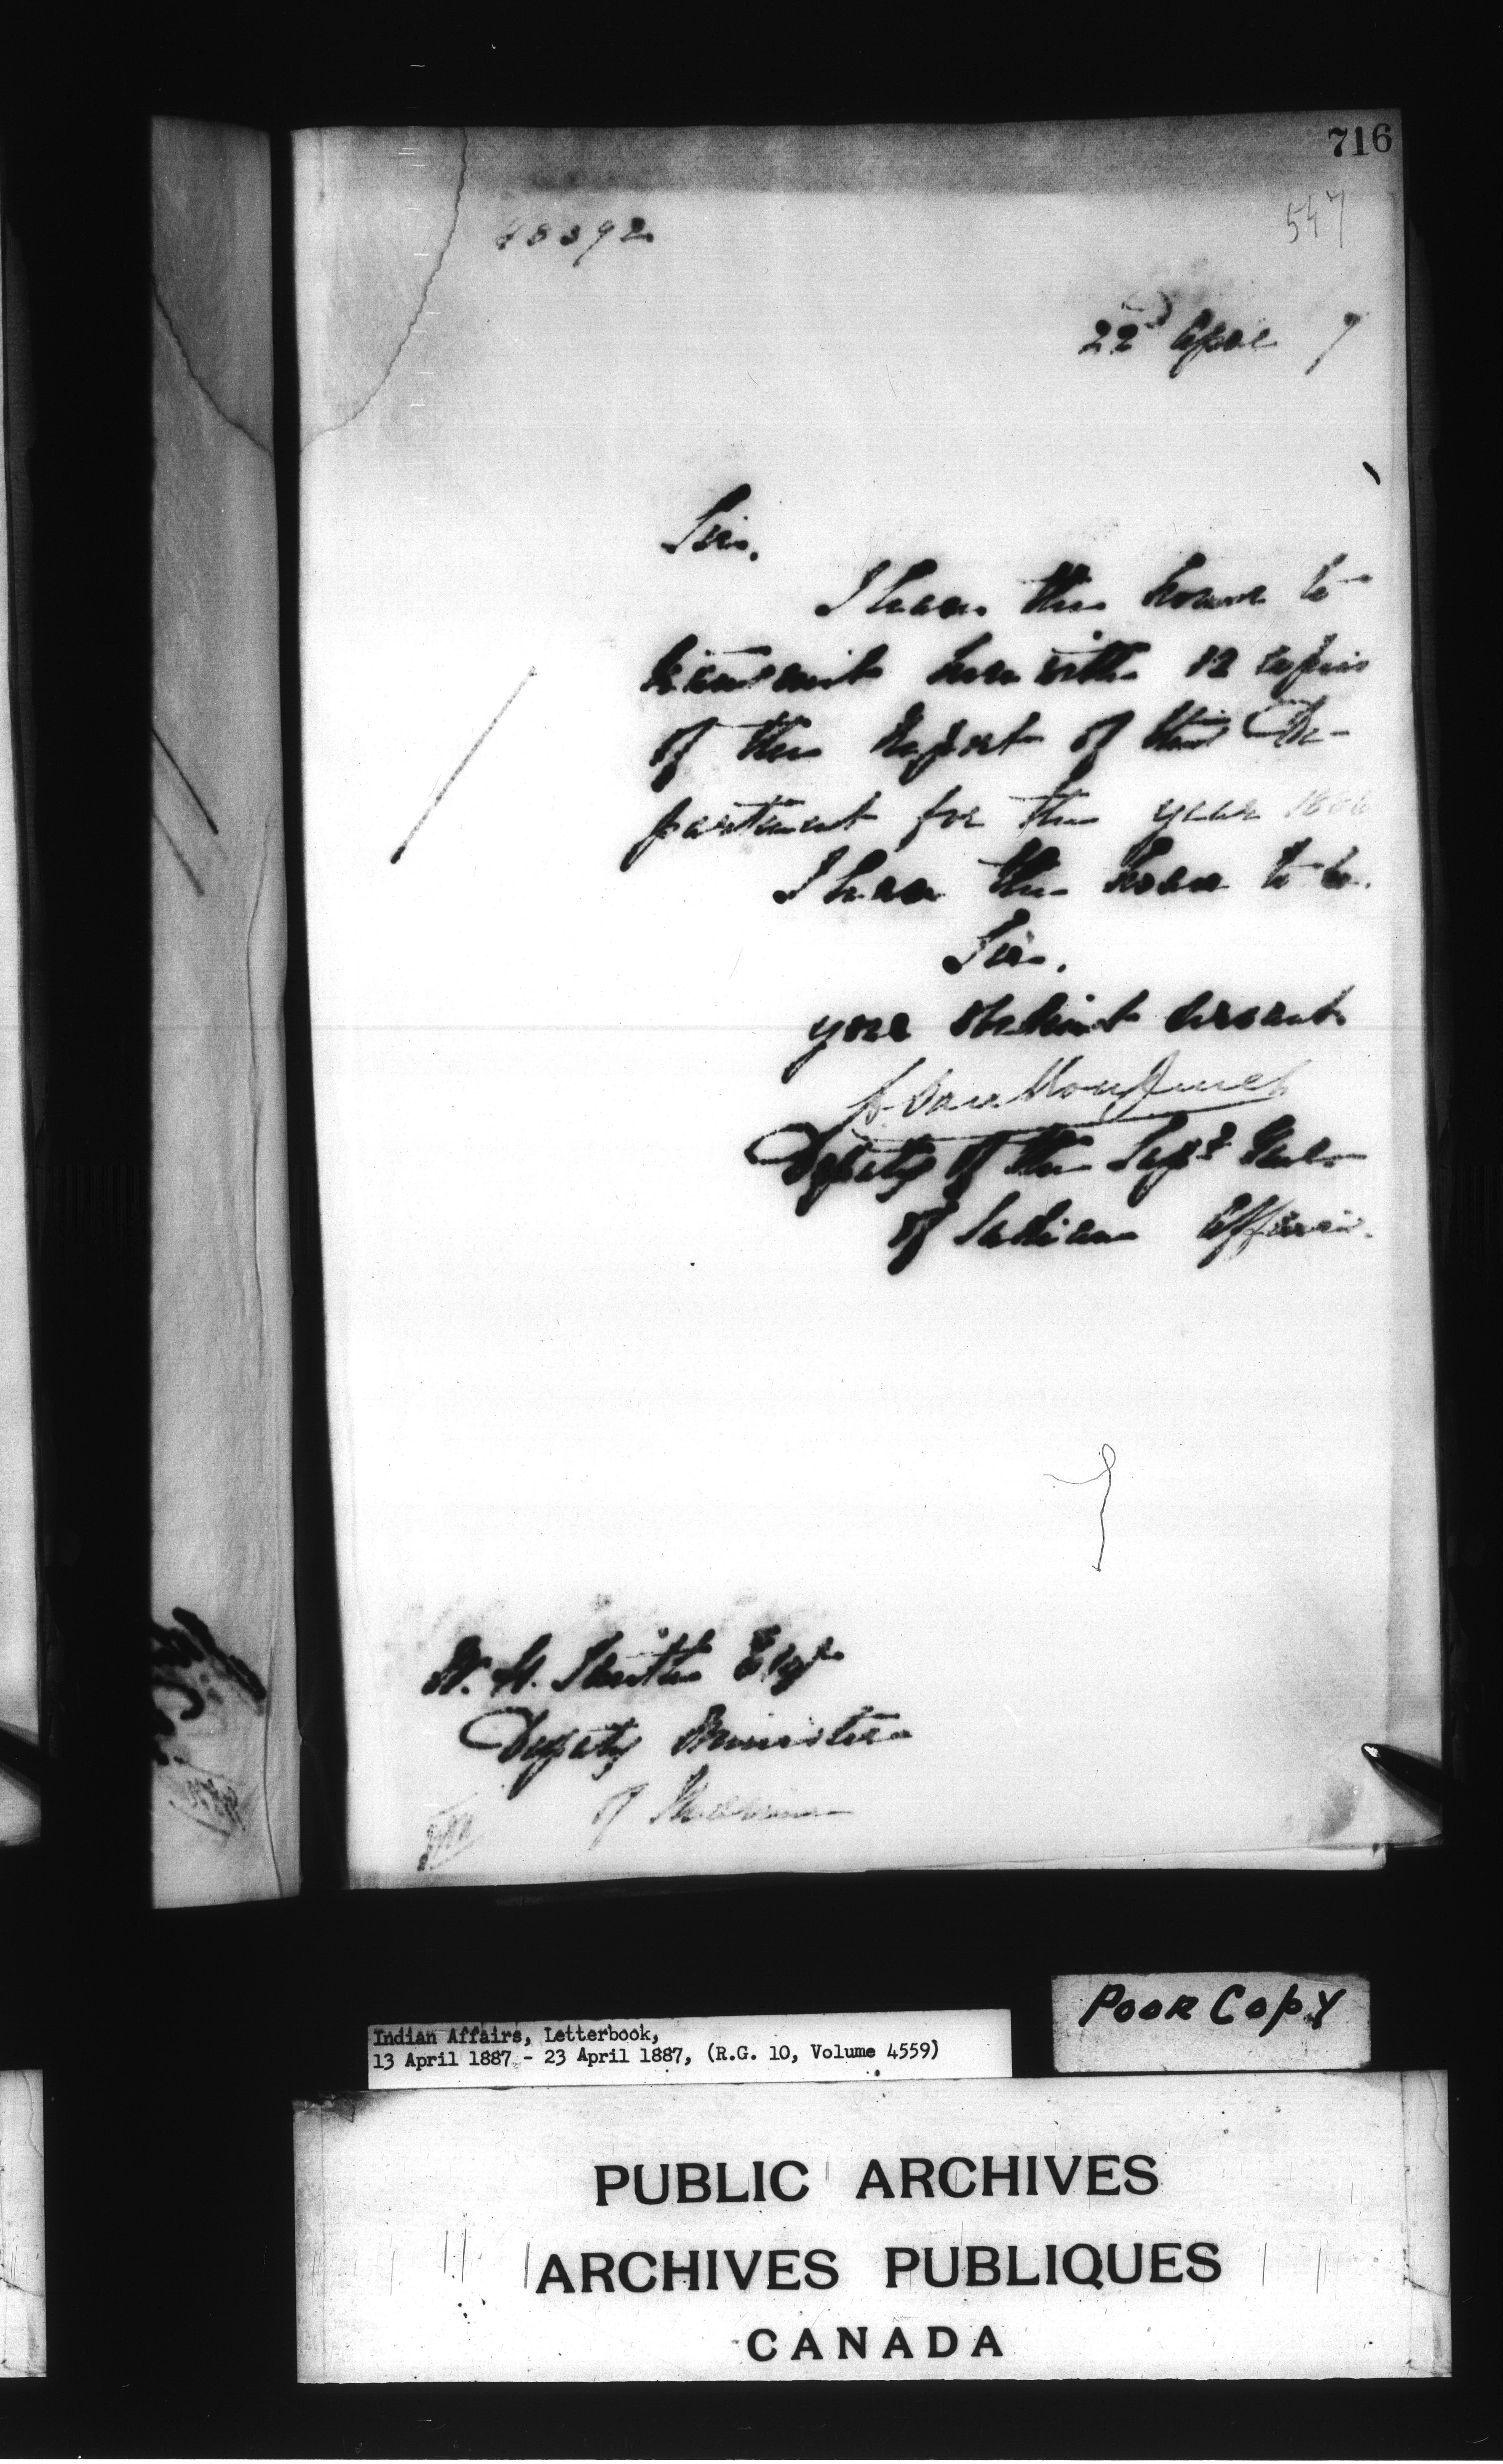 716
547
48392
22d April 7
Sir,
I have the honor to
transmit herewith 12 copies
of the Report of this De-
partment for the year 1886
I have the honor to be.
Sir,
your obedient servant
L. VanKoughnet
Deputy of the Supt Genl.
of Indian Affairs.
W. Smith Esqr
Deputy Minister
of Marine
POOR COPY
Indian Affairs, Letterbook,
13 April 1887 - 23 April 1887, (R.G. 10, Volume 4559)
PUBLIC ARCHIVES
ARCHIVES PUBLIQUES
CANADA